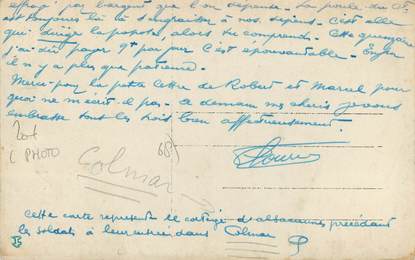 effray par l'argent que l'on dépense. La poule du
est toujours là à s'engraisser à nos dépens. C'est elle
qui dirige la popote, alors tu comprends. Cette quinzaine
j'ai dû payer 9f par jour c'est épouvantable. Enfin
il n'y a plus que patience.
Merci pour la petite lettre de Robert et Marcel pour
quoi ne m'écrit-il pas. à demain mes chéris je vous
embrasse tous les trois bien affectueusement.
C PHOTO
Colmar
68
Cette carte représente le cortège d'alsaciennes précédant
les soldats à leur entrée dans Colmar